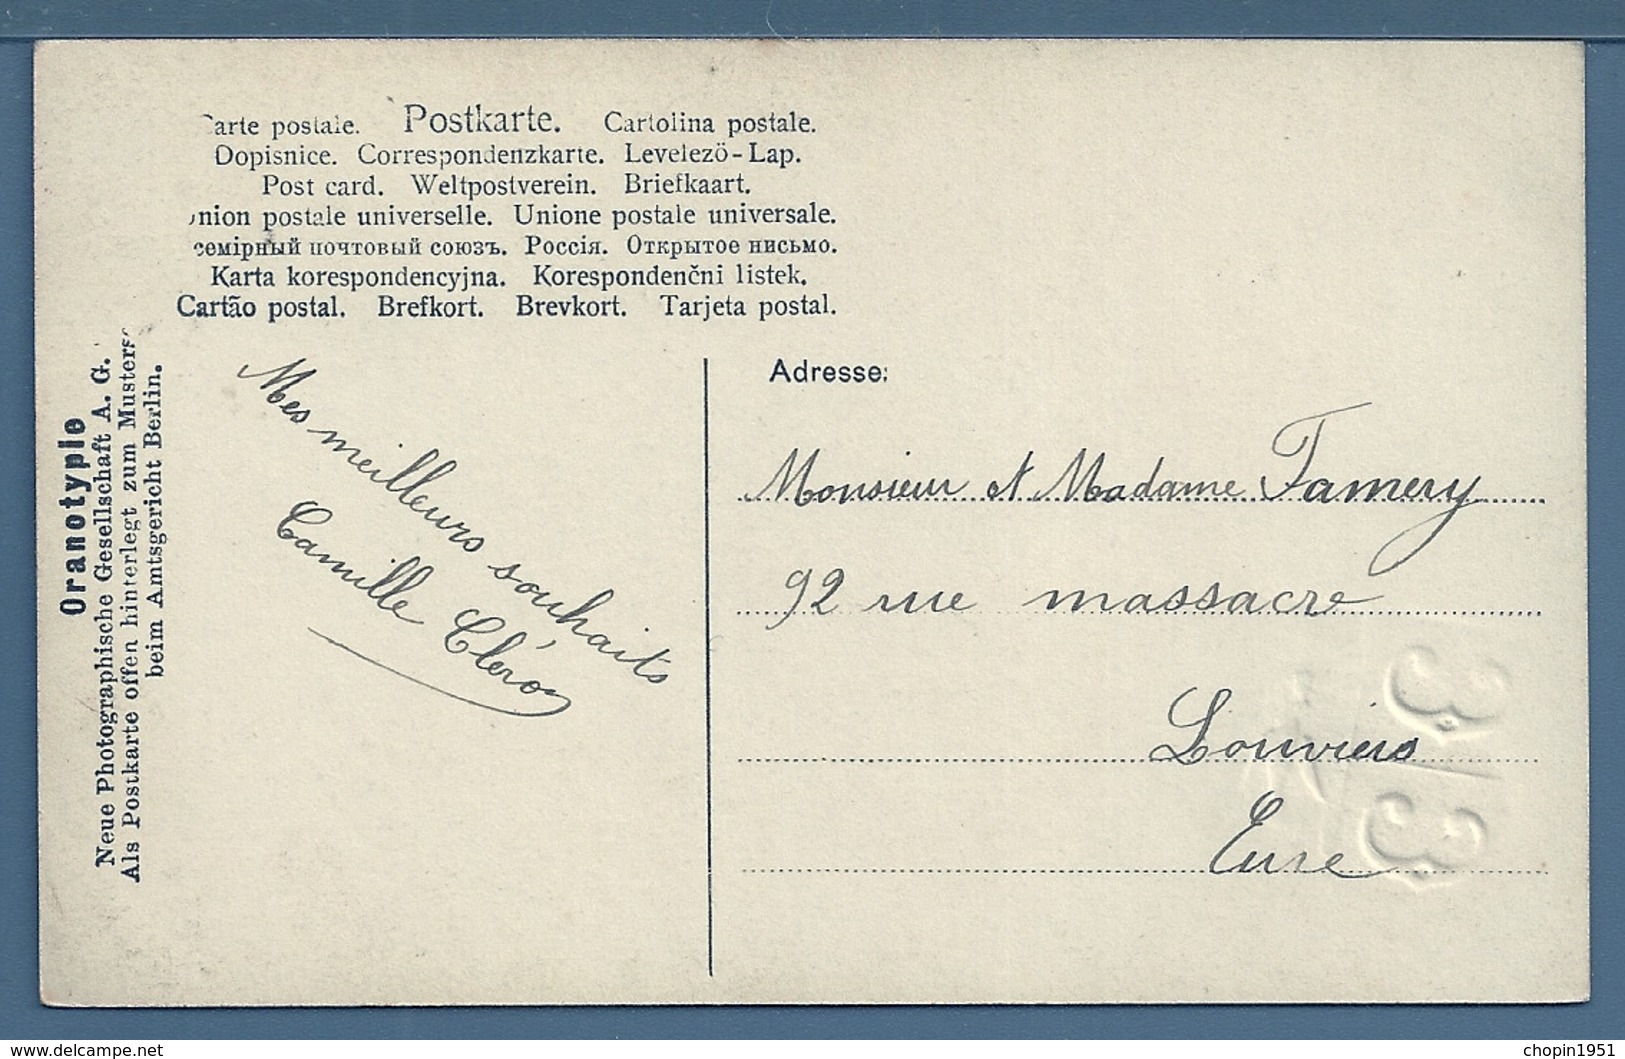 arte postale. Postkarte. Cartolina postale.
Dopisnice. Correspondenzkarte. Levelezö-Lap.
Post card. Weltpostverein. Briefkaart.
nion postale universelle. Unione postale universale.
семірный почтовый союзъ. Россія. Открытое письмо.
Karta korespondencyjna. Korespondenčni listek.
Cartão postal. Brefkort. Brevkort. Tarjeta postal.
Oranotypie
Neue Photographische Gesellschaft A. G.
Als Postkarte offen hinterlegt zum Musters
beim Amtsgericht Berlin.
Mes meilleurs souhaits
Camille Cléroy
Adresse:
Monsieur et Madame Famery
92 rue massacre
Louviers
Eure
www.delcampe.net
chopin1951